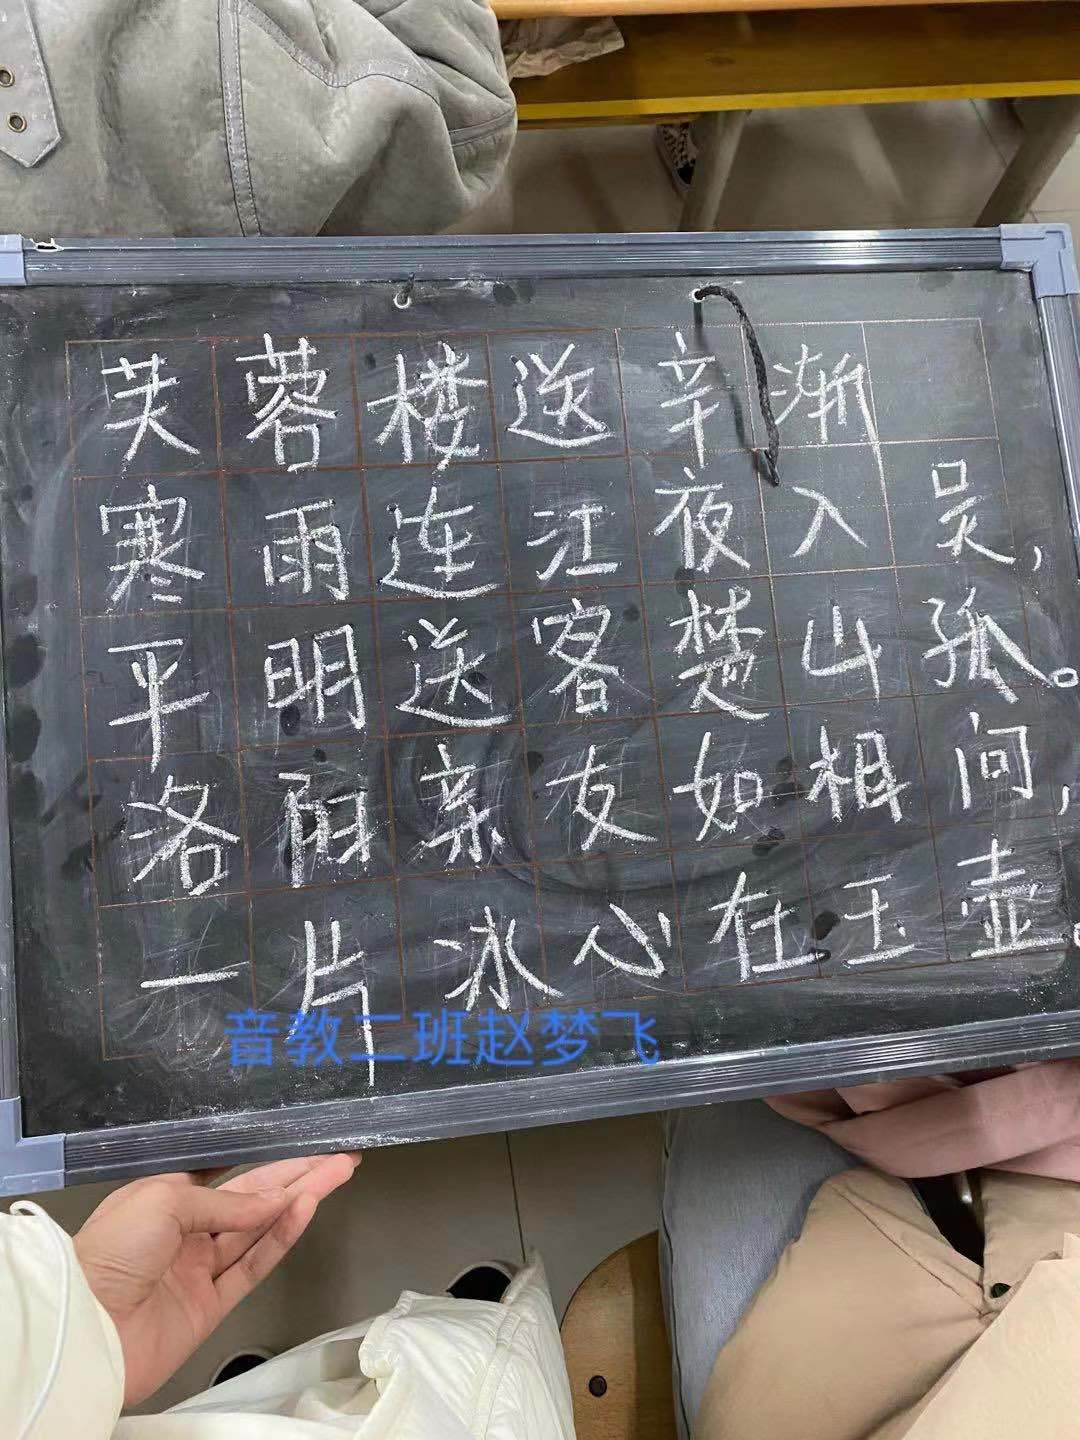 芙蓉楼送辛渐
寒雨连江夜入吴,
平明送客楚山孤。
洛阳亲友如相问,
一片冰心在玉壶。
音教二班赵梦飞